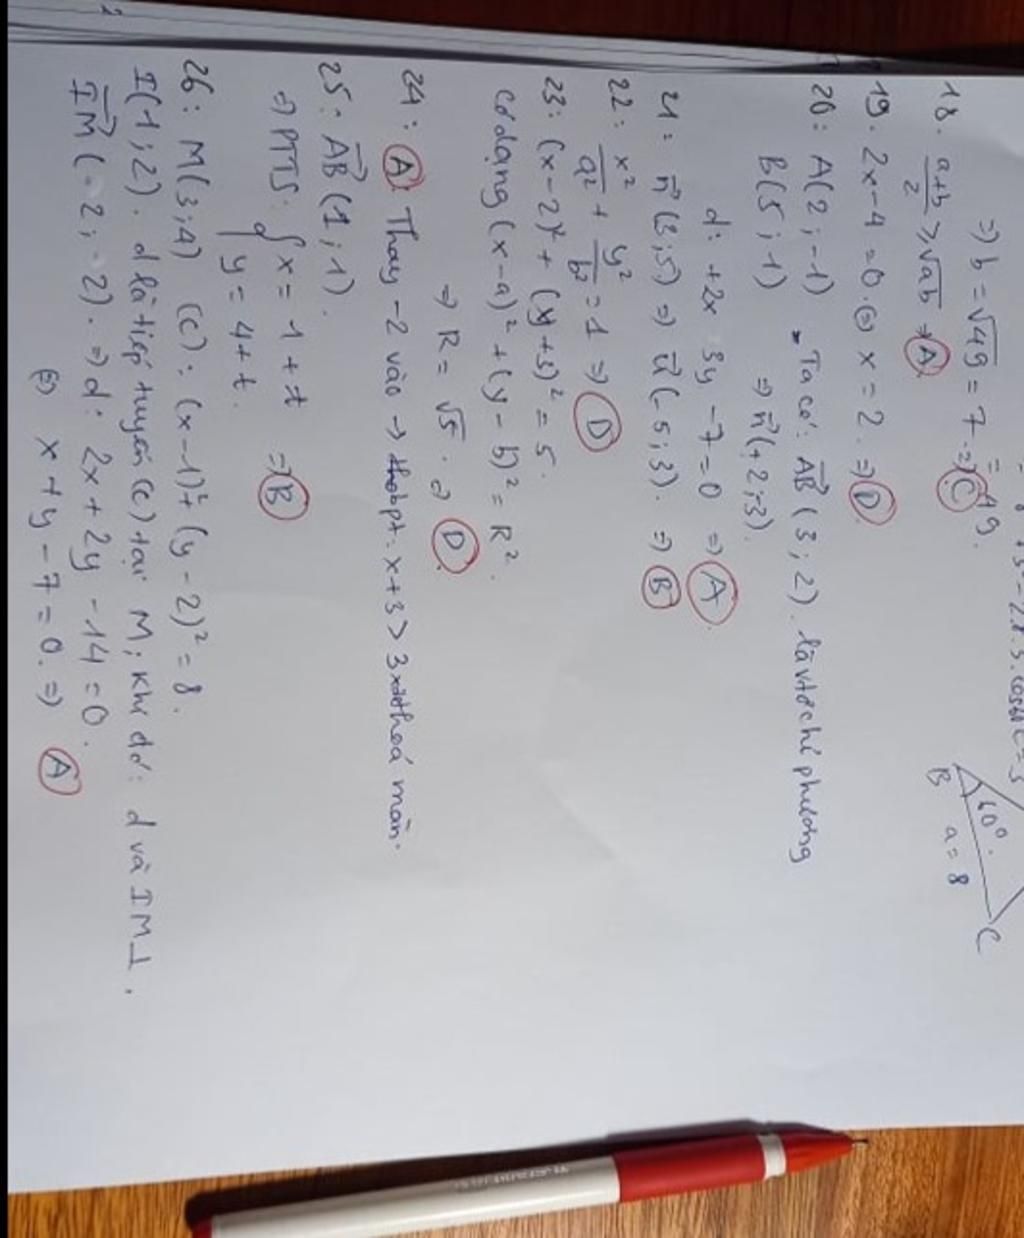 = 49.
⇒ b = √49 = 7 ⇒ C
18. (a+b)/2 ≥ √ab ⇒ A
19. 2x-4=0. ⇔ x = 2. ⇒ D
20: A(2;-1) Ta có: AB (3; 2). là vtơ chỉ phương
B(5;1) ⇒ n (+2;-3).
d: +2x 3y -7=0 ⇒ A.
21: n (3;5) ⇒ u (-5;3). ⇒ B
22: x²/a² + y²/b² = 1 ⇒ D
23: (x-2)² + (y+3)² = 5.
có dạng (x-a)² + (y-b)² = R².
⇒ R = √5. ⇒ D
24: A. Thay -2 vào → bpt. x+3>3 thoả mãn.
25: AB (1;1).
⇒ PTTS: { x = 1+t ⇒ B
y = 4+t.
26: M(3;4) (C): (x-1)²+(y-2)² = 8.
I(1;2). d là tiếp tuyến (c) tại M; Khi đó: d và IM⊥.
IM (-2;-2). ⇒ d: 2x+2y-14=0.
⇔ x+y-7=0. ⇒ A
B 60° a=8 C